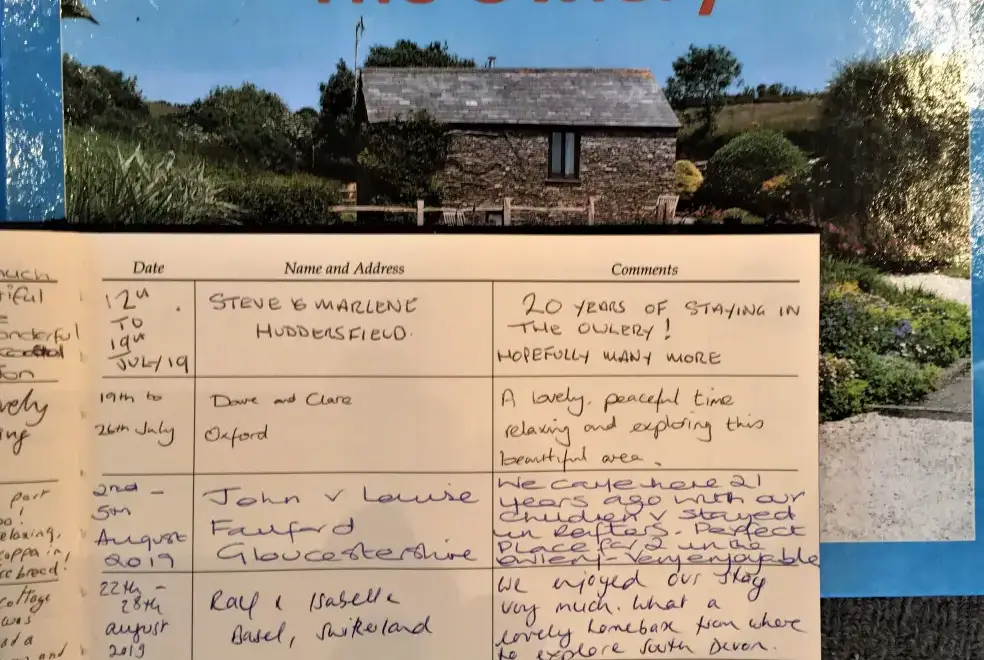 The Owlery
much
onderful
Date Name and Address Comments
12th
TO
19th
JULY 19
STEVE & MARLENE
HUDDERSFIELD.
20 YEARS OF STAYING IN
THE OWLERY!
HOPEFULLY MANY MORE
19th to
26th July
Dave and Clare
Oxford
A lovely, peaceful time
relaxing and exploring this
beautiful area.
2nd -
5th
August
2019
John & Louise
Fairford
Gloucestershire
We came here 21
years ago with our
children & stayed
in Rafters. Perfect
Place for 2 in the
Owlery - Very enjoyable
22th -
28th
august
2019
Ralf & Isabelle
Basel, Switzerland
We enjoyed our stay
very much. What a
lovely homebase from where
to explore South Devon.
part
relaxing,
bread!
cottage
was
and